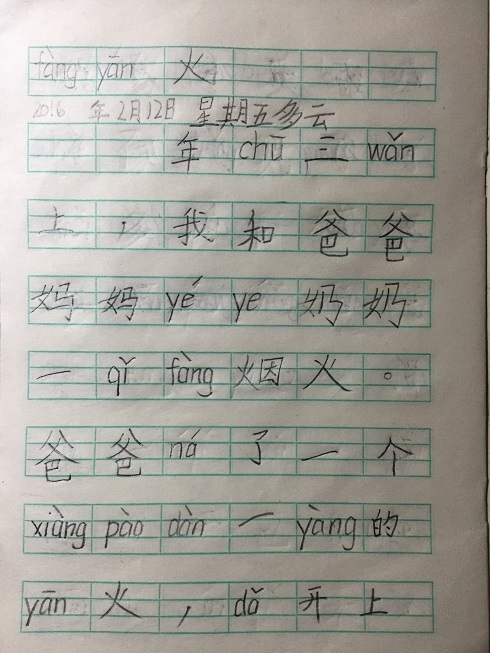 fàng yān 火
2016 年2月12日 星期五多云
年 chū 三 wǎn
上 , 我 和 爸 爸
妈 妈 yé yé 奶 奶
一 qǐ fàng 烟 火 。
爸 爸 ná 了 一 个
xiàng pào dàn 一 yàng 的
yān 火 , dǎ 开 上